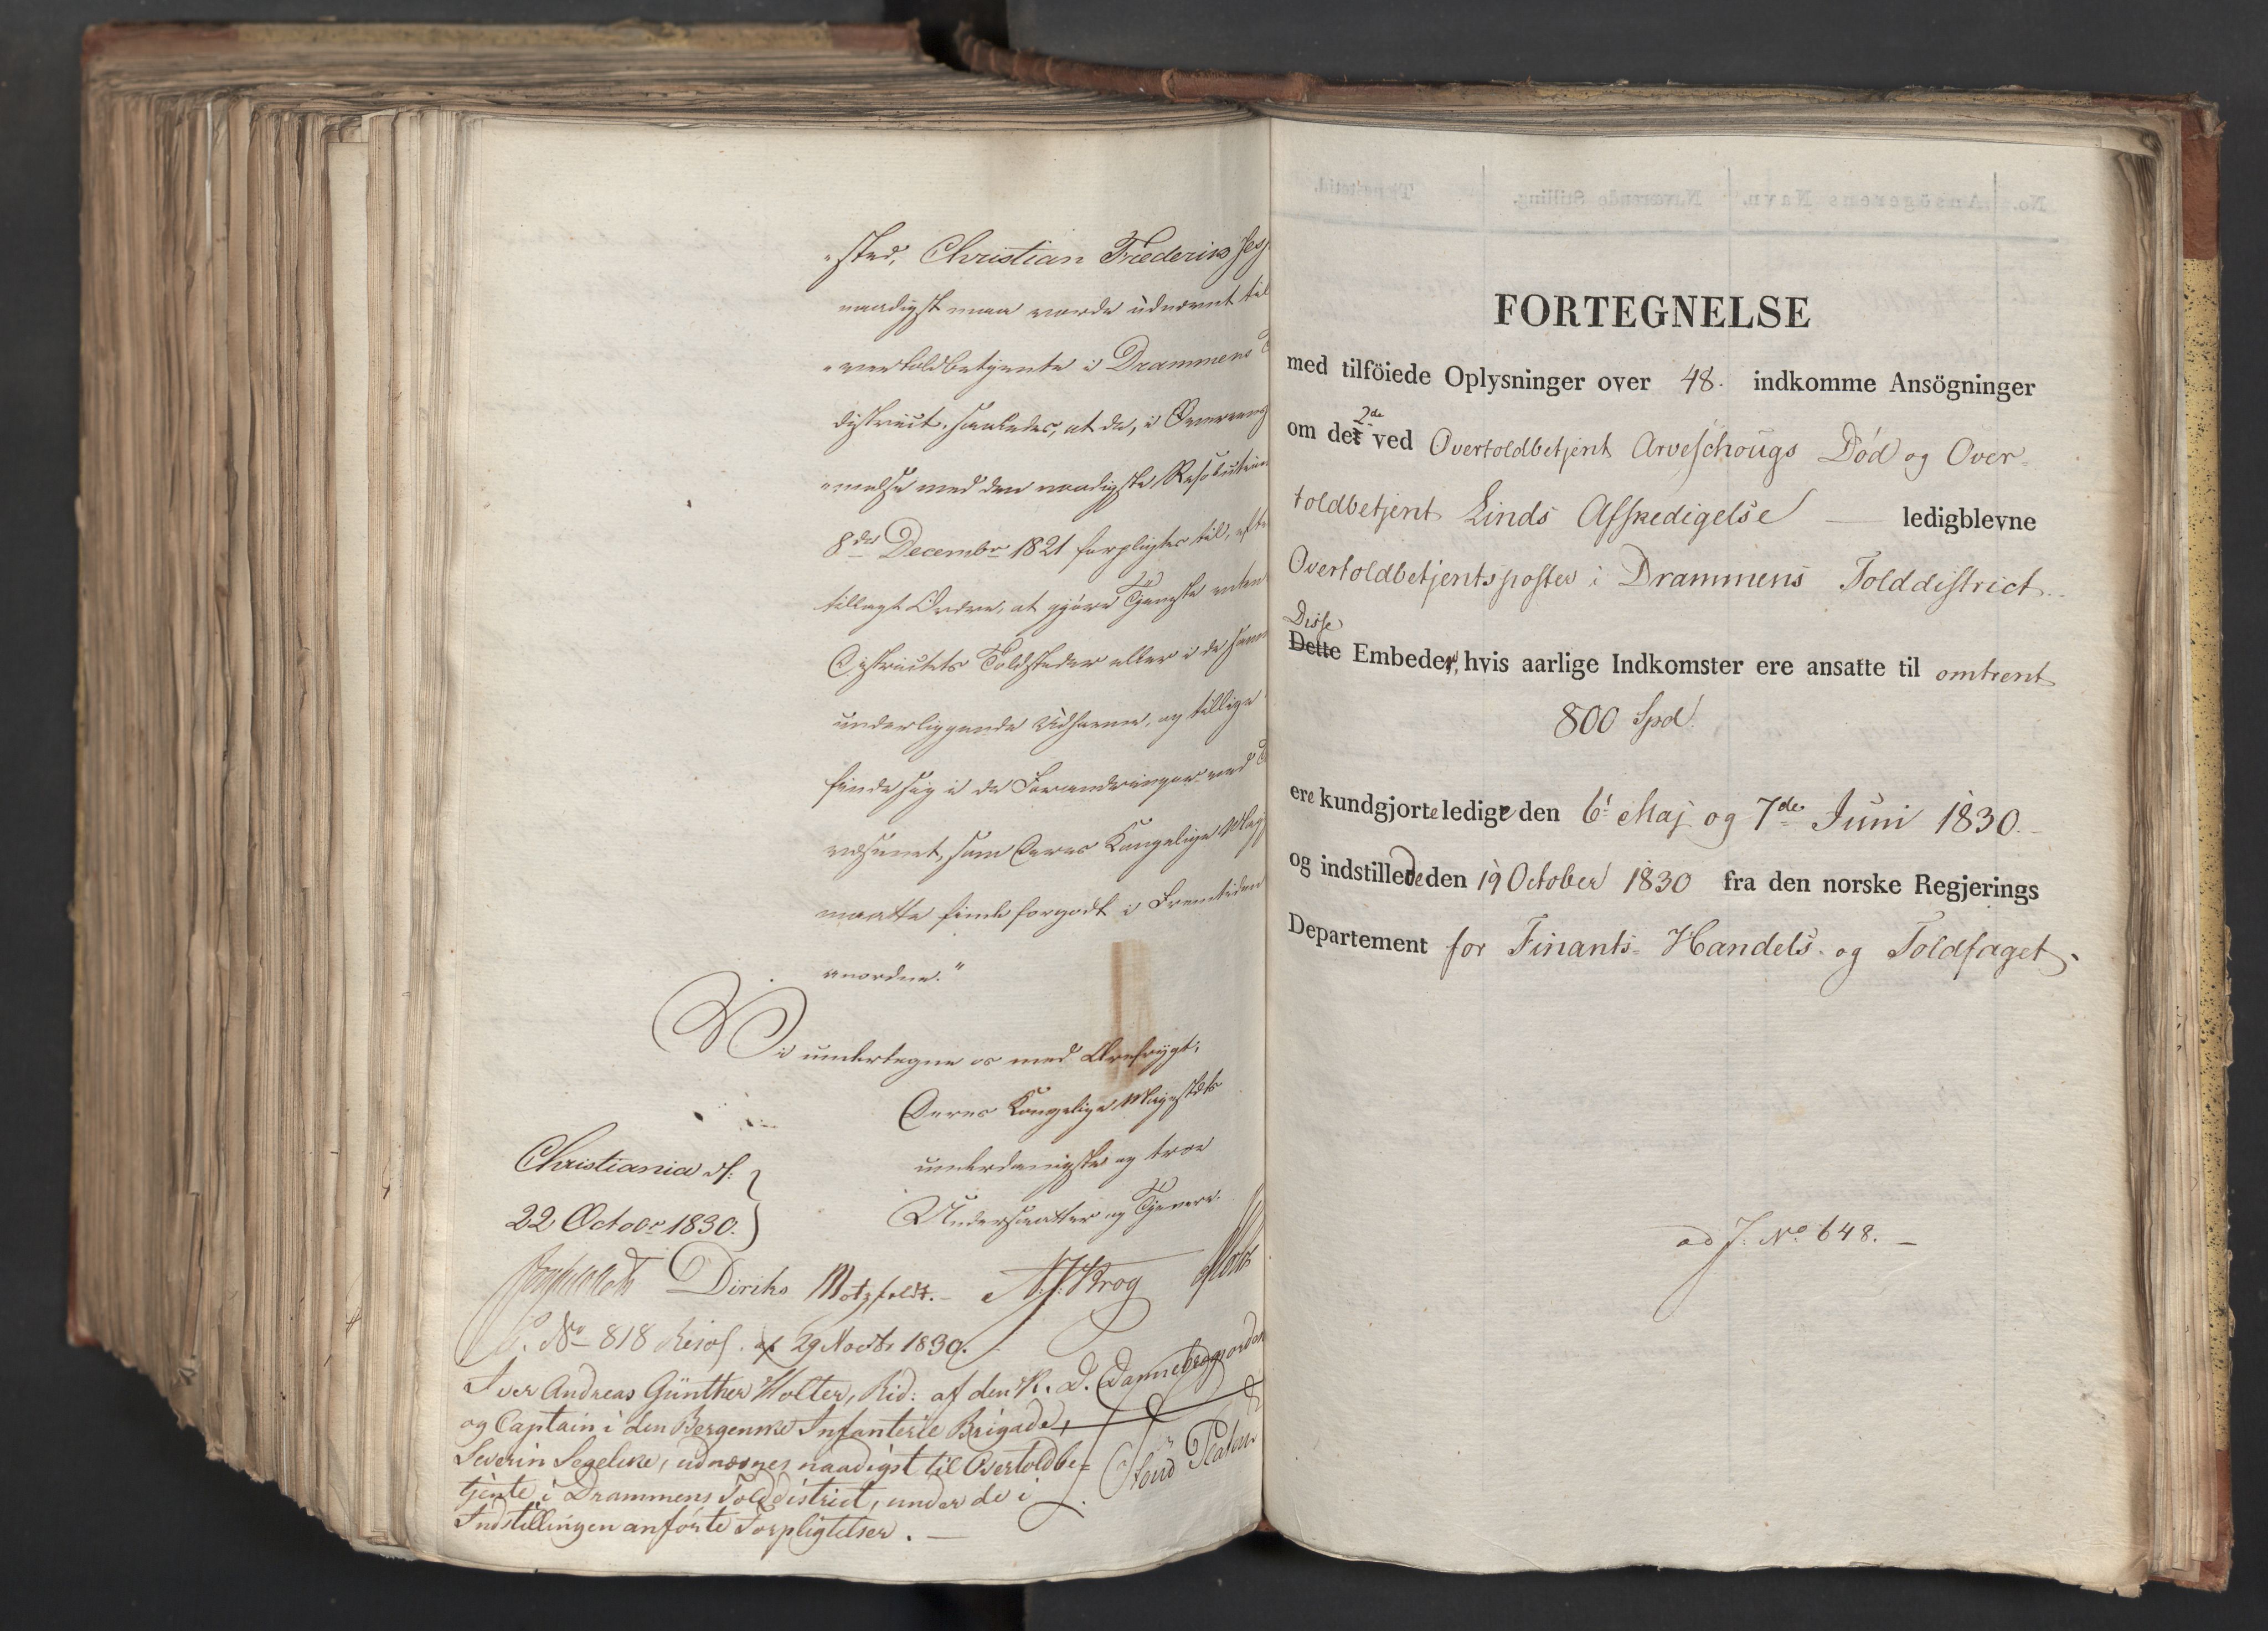 "sted, Christian Frederik Jes
naadigst maa vorde udnævnt til
"vertoldbetjente i Drammens
district, saaledes, at de, i Overeens
"melse med den naadigste Resolution
8de Decembr 1821 forpligtes til, efter
tillagt Ordre, at gjøre Tjeneste enten
Districtets Toldsteder eller i de samm
underliggende Udhavne, og tillige
finde sig i de Forandringer ved
væsenet, som Deres Kongelige Maj
maatte finde forgodt i Fremtiden
anordne."
Vi undertegne os med Ærefrygt,
Deres Kongelige Majestæts
underdanigste og troe
Undersaatter og Tjenere.
Christiania d:
22 Octobr 1830.
Diriks Motzfeldt. Krog Holst
No 818 Resol. af 29 Novbr 1830.
Iver Andreas Günther Holter, Rid: af den K. D. Dannebrogsorden
og Captain i den Bergenske Infanterie Brigade, &
Severin Segelcke, udnævnes naadigst til Overtoldbe=
tjente i Drammens Tolddistrict, under de i
Indstillingen anförte Forpligtelser. —
Platen
No. Ansögerens Navn. Nærværende Stilling. Tjenstetid.
FORTEGNELSE
med tilföiede Oplysninger over 48. indkomne Ansögninger
om de 2de ved Overtoldbetjent Arveschougs Död og Over=
toldbetjent Linds Afskedigelse — ledigblevne
Overtoldbetjentsposter i Drammens Tolddistrict.
Disse
Dette Embeder, hvis aarlige Indkomster ere ansatte til omtrent
800 Spd.
ere kundgjorte ledige den 6' Maj og 7de Juni 1830.
og indstillede den 19 October 1830 fra den norske Regjerings
Departement for Finants- Handels- og Toldfaget.
ad J. No 648. —